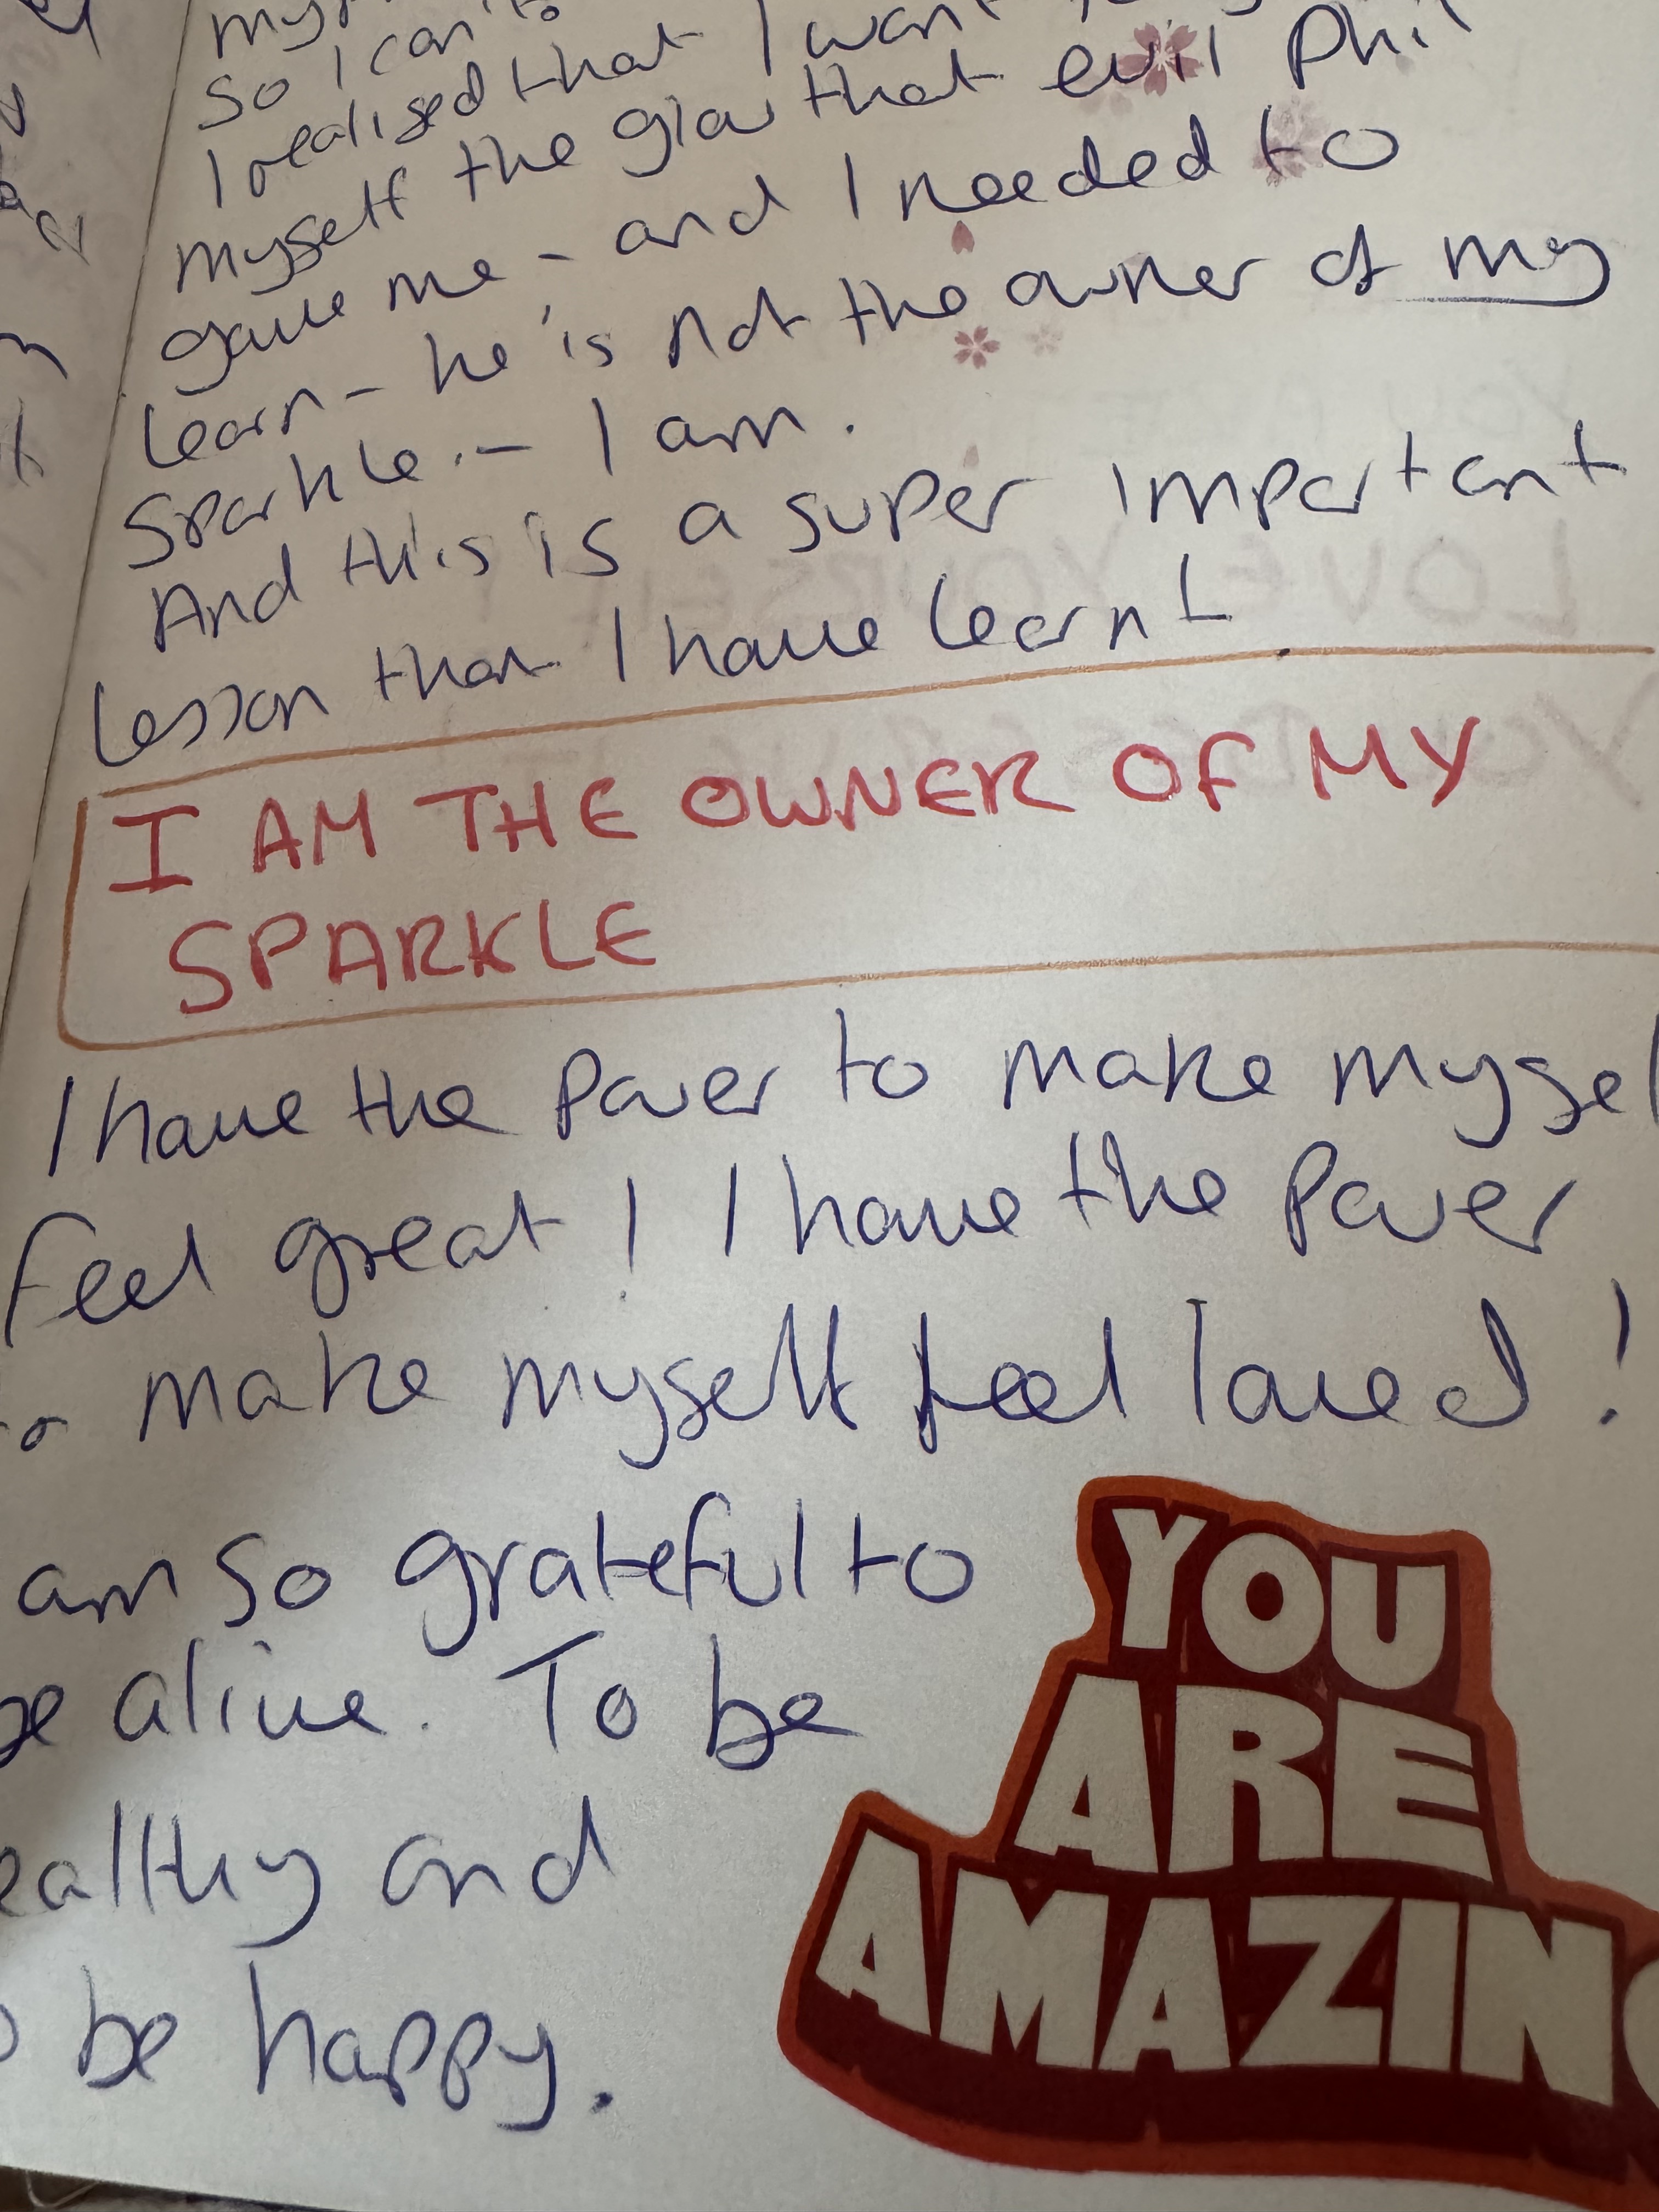 So I can
I realised that I want
myself the glow that evil Phil
gave me - and I needed to
learn - he is not the owner of my
sparkle. - I am.
And this is a super important
lesson that I have learnt.
I AM THE OWNER OF MY
SPARKLE
I have the power to make mysel
feel great! I have the power
to make myself feel loved!
am so grateful to
be alive. To be
ealthy and
be happy.
YOU
ARE
AMAZIN